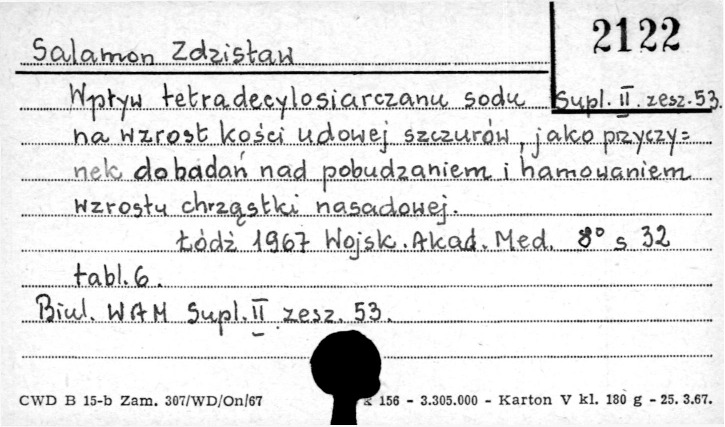 2122
Salamon Zdzisław
Wpływ tetradecylosiarczanu sodu Supl. II. zesz. 53.
na wzrost kości udowej szczurów, jako przyczy=
nek do badań nad pobudzaniem i hamowaniem
wzrostu chrząstki nasadowej.
Łódź 1967 Wojsk. Akad. Med. 8° s 32
tabl. 6.
Biul. WAM Supl. II zesz. 53.
CWD B 15-b Zam. 307/WD/On/67 156 - 3.305.000 - Karton V kl. 180 g - 25. 3.67.